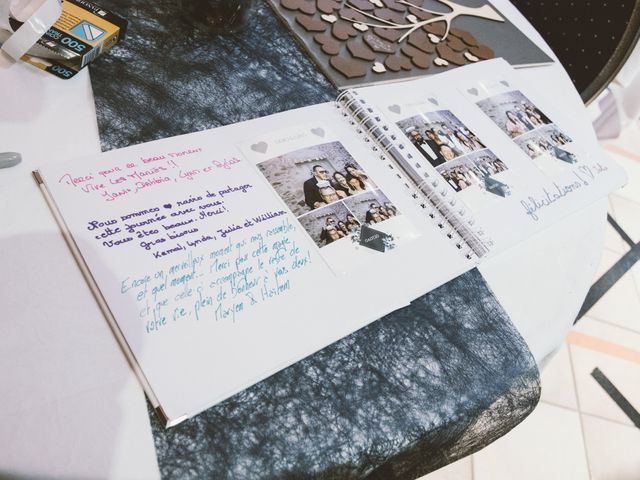 500
500
Merci pour ce beau moment
Vive les Mariés !!
Nous sommes ravis de partager
cette journée avec vous.
Vous êtes beaux. Merci!
Gros bisous
Kemal, Lynda, Julia et William
Encore un merveilleux moment qui nous rassemble,
et quel moment... Merci pour cette
et que celle-ci accompagne le reste de
votre vie, plein de bonheur à vous deux!
Maryem & Haitem
félicitations